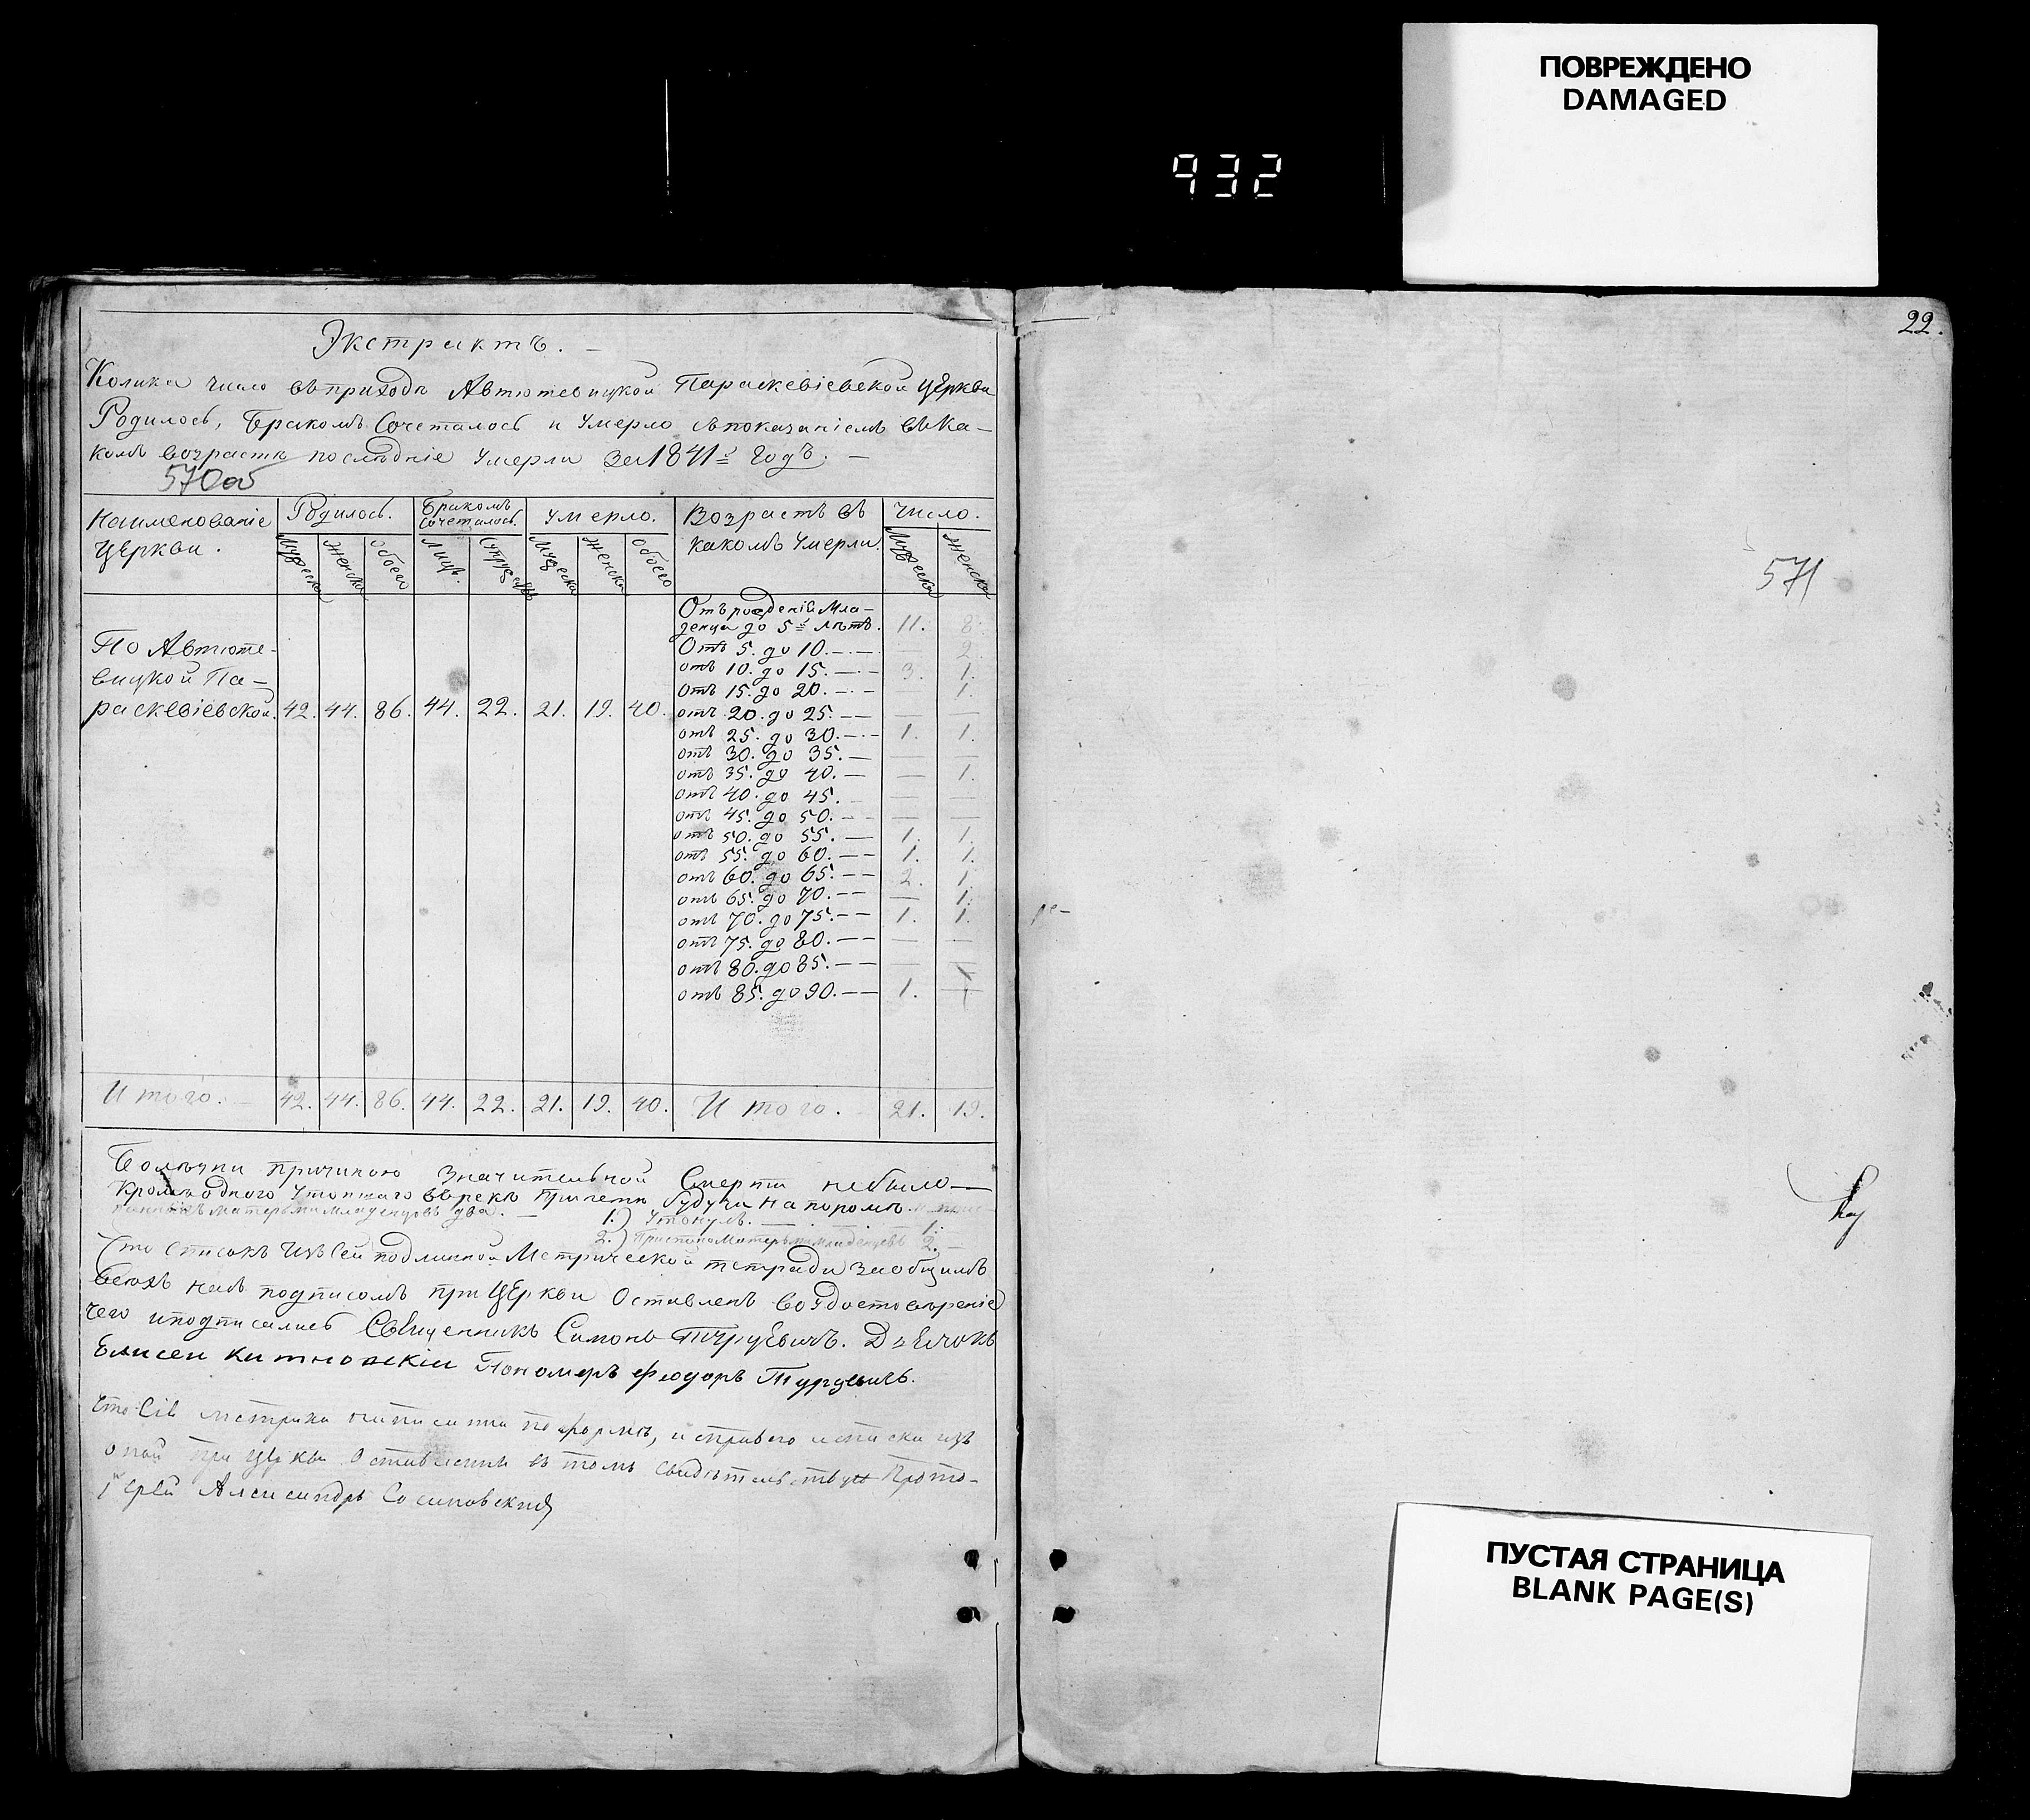 ПОВРЕЖДЕНО
DAMAGED
932
22.
Экстрактъ. —
Колика число въ приходѣ Автютевицкой Параскевіевской Церкви
Родилось, Бракомъ Сочеталось и Умерло съ показаніемъ въ ка-
комъ возрастѣ послѣдніе Умерли за 1841й Годъ. —
570об
Наименованіе Церкви.
Родилось.
Бракомъ Сочеталось.
Умерло.
Возрастъ въ какомъ Умерли.
Число.
Мужеска Женска Обоего Лицъ. Супружествъ Мужеска Женска Обоего Мужеска Женска
По Автюте-
вицкой Па-
раскевіевской. 42. 44. 86. 44. 22. 21. 19. 40.
Отъ рожденія Мла-
денца до 5й лѣтъ. 11. 8.
Отъ 5. до 10. — 2.
отъ 10. до 15. — 3. 1.
отъ 15. до 20. — 1.
отъ 20. до 25. — — —
отъ 25. до 30. — 1. 1.
отъ 30. до 35. — — —
отъ 35. до 40. — — 1.
отъ 40. до 45. — —
отъ 45. до 50. — — —
отъ 50. до 55. — 1. 1.
отъ 55. до 60. — 1. 1.
отъ 60. до 65. — 2. 1.
отъ 65. до 70. — — 1.
отъ 70. до 75. — 1. 1.
отъ 75. до 80. — — —
отъ 80. до 85. — — —
отъ 85. до 90. — 1.
Итого. 42. 44. 86. 44. 22. 21. 19. 40. Итого. 21. 19.
571
причиною значительной Смерти небыло —
Кромѣ одного Утопшаго въ рекѣ будучи на поромѣ.
матерьми младенцовъ два. —
1.) Утонулъ. — 1.
2.) матерьми младенцевъ 2. —
Что Списокъ изъ Сей подлинной Метрической тетради за общимъ
всехъ насъ подписомъ при Церкви Оставленъ во удостовѣреніе
чего и подписались Священникъ Симонъ Турцевичъ. Дьячокъ
Елисей Пономарь Феодоръ Турцевичъ.
Что Сія метрика написанна по формѣ, и списки изъ
оной при Церкви Оставленны въ томъ свидѣтельствую Прото-
іерей Александръ
ПУСТАЯ СТРАНИЦА
BLANK PAGE(S)